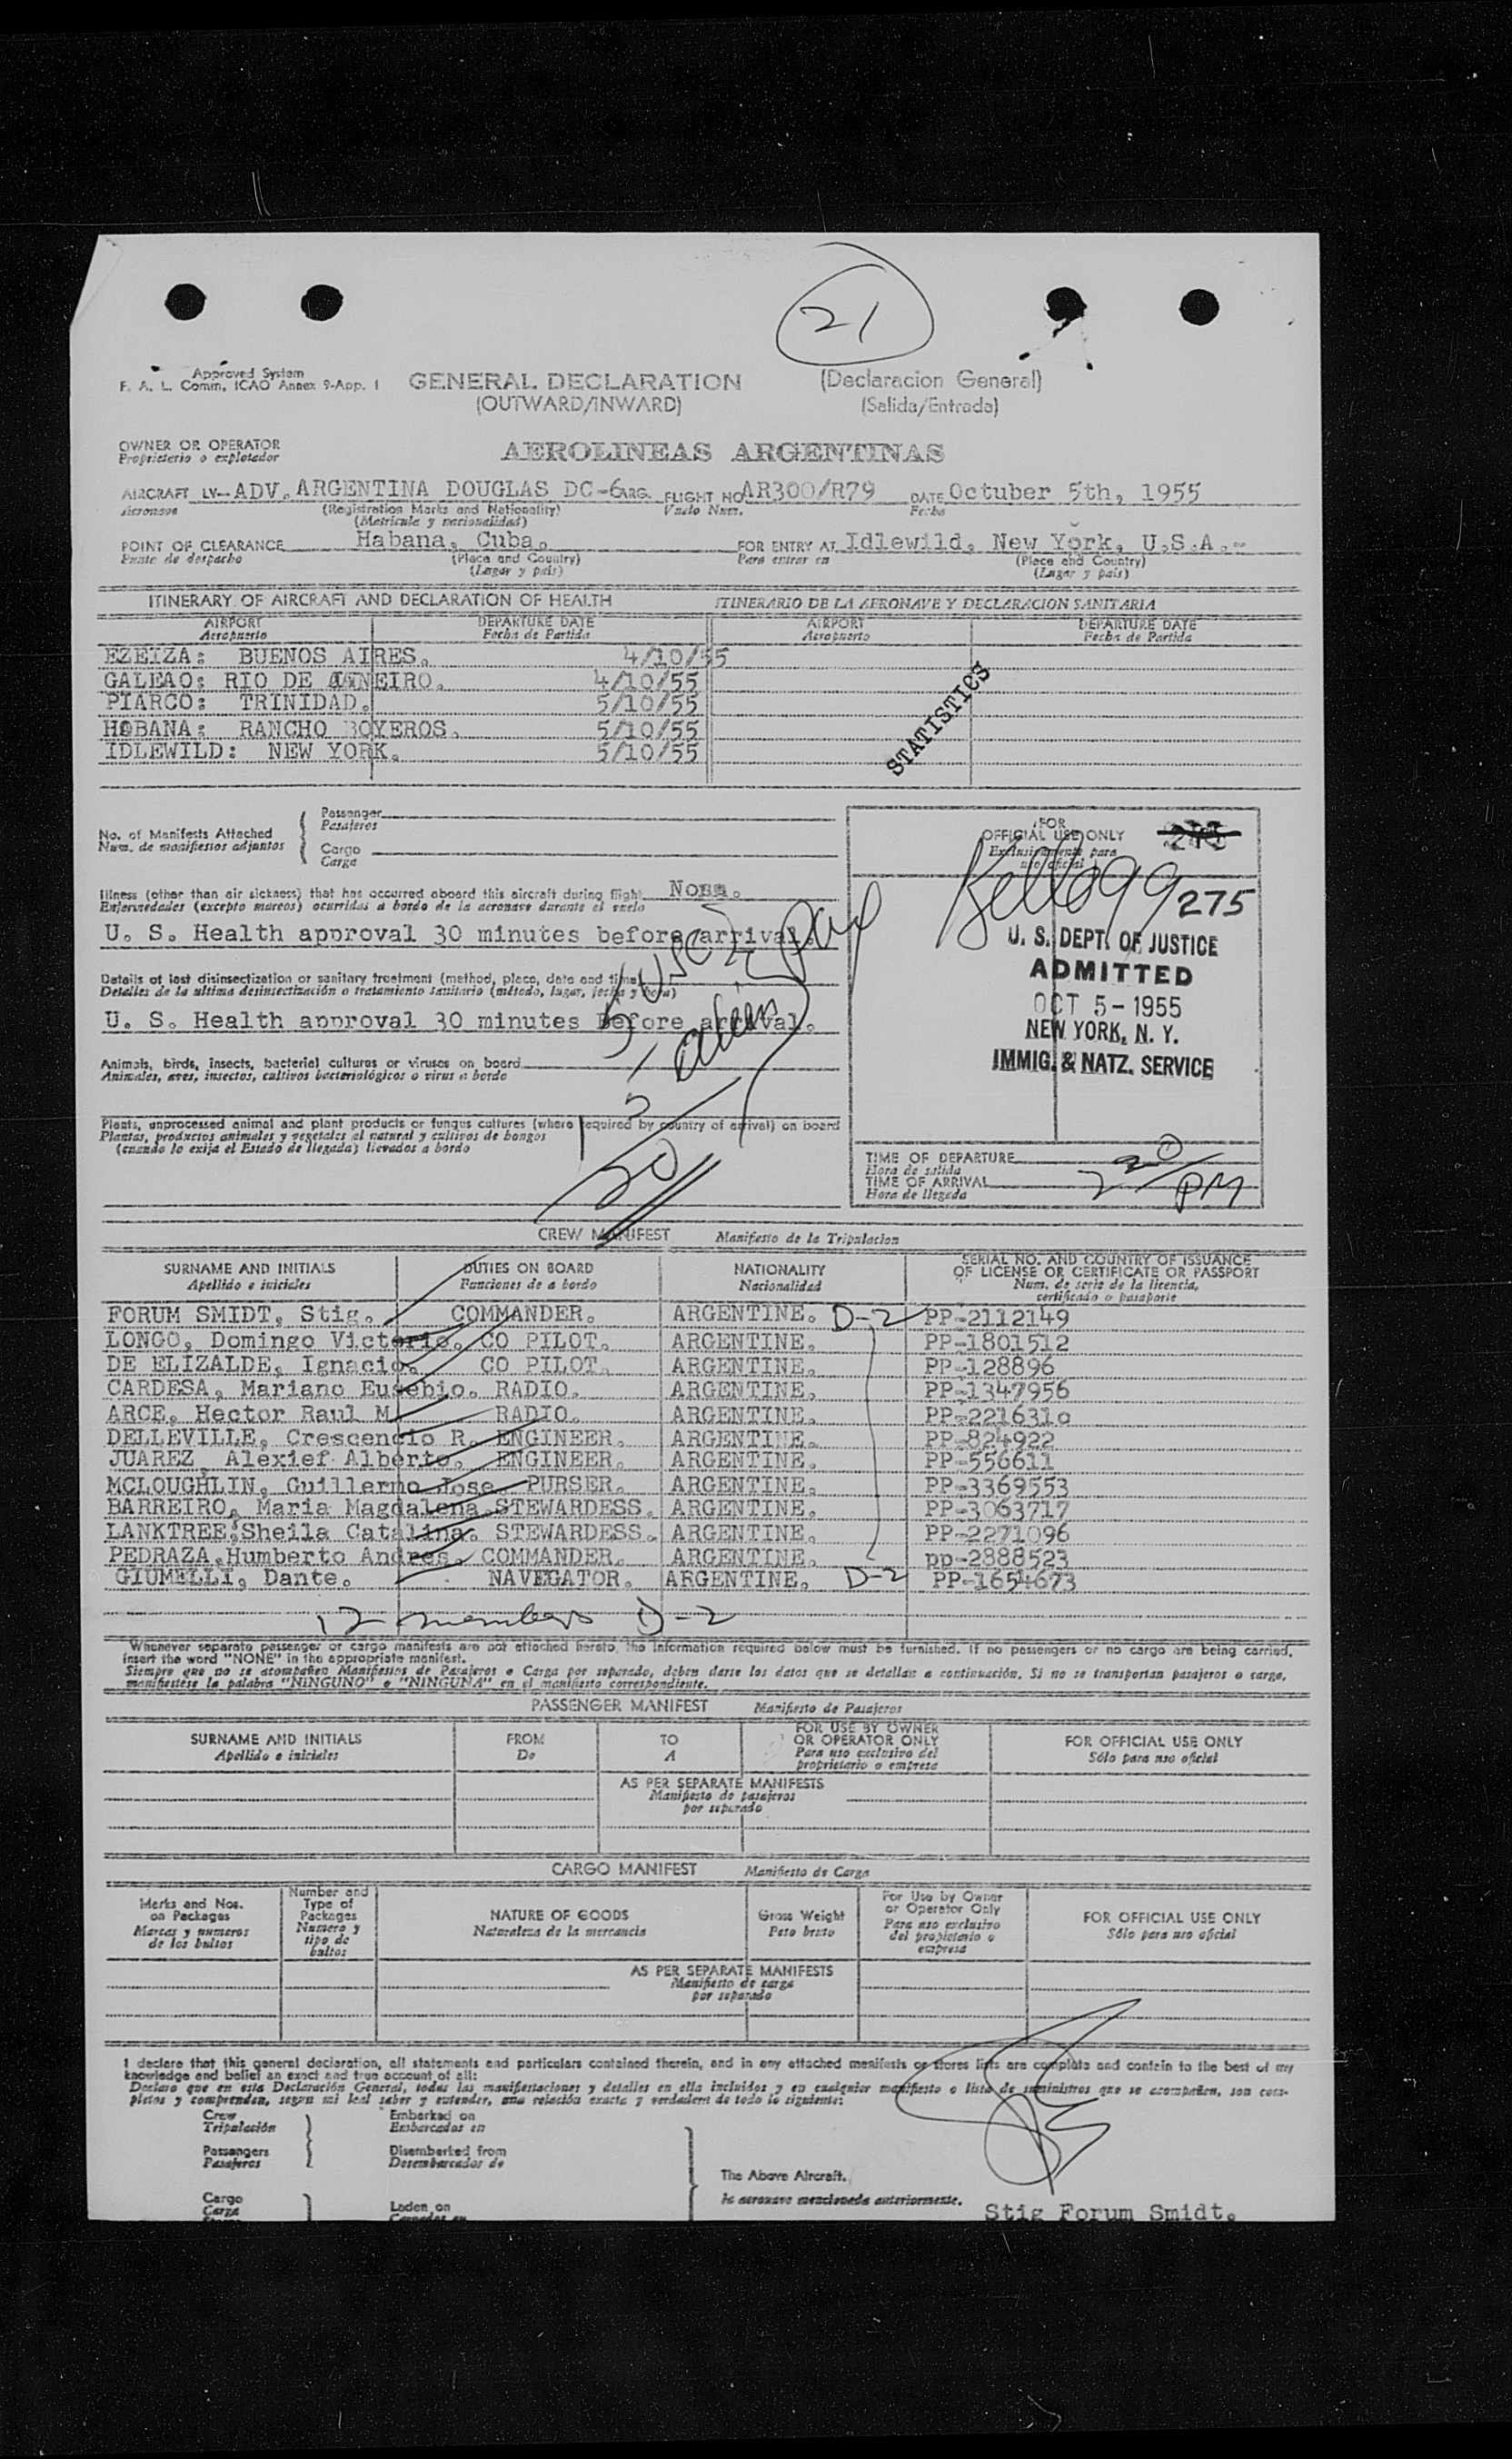 21
Approved System
F. A. L. Comm. ICAO Annex 9-App. 1
GENERAL DECLARATION (Declaracion General)
(OUTWARD/INWARD) (Salida/Entrada)
OWNER OR OPERATOR
Proprietario o explotador
AEROLINEAS ARGENTINAS
AIRCRAFT LV-ADV. ARGENTINA DOUGLAS DC-6ARG. FLIGHT NO AR300/R79 DATE Octuber 5th, 1955
Aeronave (Registration Marks and Nationality) Vuelo Num. Fecha
(Matricula y nacionalidad)
POINT OF CLEARANCE Habana, Cuba. FOR ENTRY AT Idlewild, New York, U.S.A.-
Punto de despacho (Place and Country) Para entrar en (Place and Country)
(Lugar y país) (Lugar y país)
ITINERARY OF AIRCRAFT AND DECLARATION OF HEALTH ITINERARIO DE LA AERONAVE Y DECLARACION SANITARIA
AIRPORT DEPARTURE DATE AIRPORT DEPARTURE DATE
Aeropuerto Fecha de Partida Aeropuerto Fecha de Partida
EZEIZA: BUENOS AIRES. 4/10/55
GALEAO: RIO DE JANEIRO. 4/10/55
PIARCO: TRINIDAD. 5/10/55
HABANA: RANCHO BOYEROS. 5/10/55
IDLEWILD: NEW YORK. 5/10/55
STATISTICS
No. of Manifests Attached
Num. de manifiestos adjuntos
Passenger
Pasajeros
Cargo
Carga
Illness (other than air sickness) that has occurred aboard this aircraft during flight None.
Enfermedades (excepto mareos) ocurridas a bordo de la aeronave durante el vuelo
U. S. Health approval 30 minutes before arrival.
Details of last disinsectization or sanitary treatment (method, place, date and time)
Detalles de la ultima desinsectización o tratamiento sanitario (método, lugar, fecha y hora)
U. S. Health approval 30 minutes Before arrival.
Animals, birds, insects, bacterial cultures or viruses on board
Animales, aves, insectos, cultivos bacteriológicos o virus a bordo
Plants, unprocessed animal and plant products or fungus cultures (where required by country of arrival) on board
Plantas, productos animales y vegetales al natural y cultivos de hongos
(cuando lo exija el Estado de llegada) llevados a bordo
5 USC
15 aliens
20
FOR
OFFICIAL USE ONLY
Exclusivamente para
uso oficial
Kellogg
275
U. S. DEPT. OF JUSTICE
ADMITTED
OCT 5-1955
NEW YORK, N. Y.
IMMIG. & NATZ. SERVICE
TIME OF DEPARTURE
Hora de salida
TIME OF ARRIVAL 2 20 PM
Hora de llegada
CREW MANIFEST Manifiesto de la Tripulacion
SURNAME AND INITIALS DUTIES ON BOARD NATIONALITY SERIAL NO. AND COUNTRY OF ISSUANCE
OF LICENSE OR CERTIFICATE OR PASSPORT
Apellido e iniciales Funciones de a bordo Nacionalidad Num. de serie de la licencia,
certificado o pasaporte
FORUM SMIDT, Stig. COMMANDER. ARGENTINE. D-2 PP-2112149
LONGO, Domingo Victorio. CO PILOT. ARGENTINE. PP-1801512
DE ELIZALDE, Ignacio. CO PILOT. ARGENTINE. PP-128896
CARDESA, Mariano Eusebio. RADIO. ARGENTINE. PP-1347956
ARCE, Hector Raul M. RADIO. ARGENTINE. PP-2216310
DELLEVILLE, Crescencio R. ENGINEER. ARGENTINE. PP-824922
JUAREZ, Alexief Alberto. ENGINEER. ARGENTINE. PP-556611
MCLOUGHLIN, Guillermo Jose. PURSER. ARGENTINE. PP-3369553
BARREIRO, Maria Magdalena. STEWARDESS. ARGENTINE. PP-3063717
LANKTREE, Sheila Catalina. STEWARDESS. ARGENTINE. PP-2271096
PEDRAZA, Humberto Andres. COMMANDER. ARGENTINE. pp-2888523
GIUMELLI, Dante. NAVEGATOR. ARGENTINE. D-2 PP-1654673
12 members D-2
Whenever separate passenger or cargo manifests are not attached hereto, the information required below must be furnished. If no passengers or no cargo are being carried,
insert the word "NONE" in the appropriate manifest.
Siempre que no se acompañen Manifiestos de Pasajeros o Carga por separado, deben darse los datos que se detallan a continuación. Si no se transportan pasajeros o carga,
manifiestese la palabra "NINGUNO" o "NINGUNA" en el manifiesto correspondiente.
PASSENGER MANIFEST Manifiesto de Pasajeros
SURNAME AND INITIALS FROM TO FOR USE BY OWNER
OR OPERATOR ONLY FOR OFFICIAL USE ONLY
Apellido e iniciales De A Para uso exclusivo del
proprietario o empresa Sólo para uso oficial
AS PER SEPARATE MANIFESTS
Manifiesto de pasajeros
por separado
CARGO MANIFEST Manifiesto de Carga
Marks and Nos.
on Packages
Marcas y numeros
de los bultos
Number and
Type of
Packages
Numero y
tipo de
bultos
NATURE OF GOODS
Naturaleza de la mercancia
Gross Weight
Peso bruto
For Use by Owner
or Operator Only
Para uso exclusivo
del propietario o
empresa
FOR OFFICIAL USE ONLY
Sólo para uso oficial
AS PER SEPARATE MANIFESTS
Manifiesto de carga
por separado
I declare that this general declaration, all statements and particulars contained therein, and in any attached manifests or stores lists are complete and contain to the best of my
knowledge and belief an exact and true account of all:
Declaro que en esta Declaración General, todas las manifiestaciones y detalles en ella incluidos y en cualquier manifiesto o lista de suministros que se acompañen, son com-
pletos y comprenden, segun mi leal saber y entender, una relación exacta y verdadera de todo lo siguiente:
Crew
Tripulación
Passengers
Pasajeros
Cargo
Carga
Embarked on
Embarcados en
Disembarked from
Desembarcados de
Laden on
The Above Aircraft.
la aeronave mencionada anteriormente.
Stig Forum Smidt.